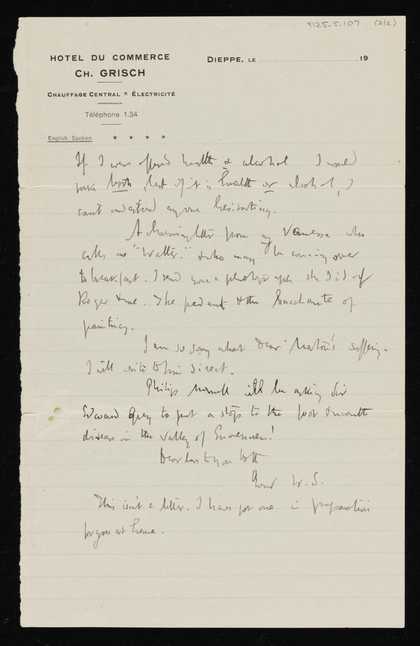 9125.5.107 (2/2)
HOTEL DU COMMERCE
CH. GRISCH
CHAUFFAGE CENTRAL * ÉLECTRICITÉ
Téléphone 1.34
English Spoken
DIEPPE, LE 19
If I were offered health & alcohol I would
take both, but if it is health or alcohol, I
can't understand anyone hesitating.
A charming letter from Vanessa who
calls me "Walter." & who may be coming over
to breakfast. I send you a photograph she did of
Roger & me. The pedant & the Bacchante of
painting.
I am so sorry what Dear is suffering.
I will write to him direct.
Philip Morrell will be asking Sir
Edward Grey to put a stop to the foot & mouth
disease in the valley of
Dear love to you both
Your W. S.
This isn't a letter. I have got one in preparation
for you at home.